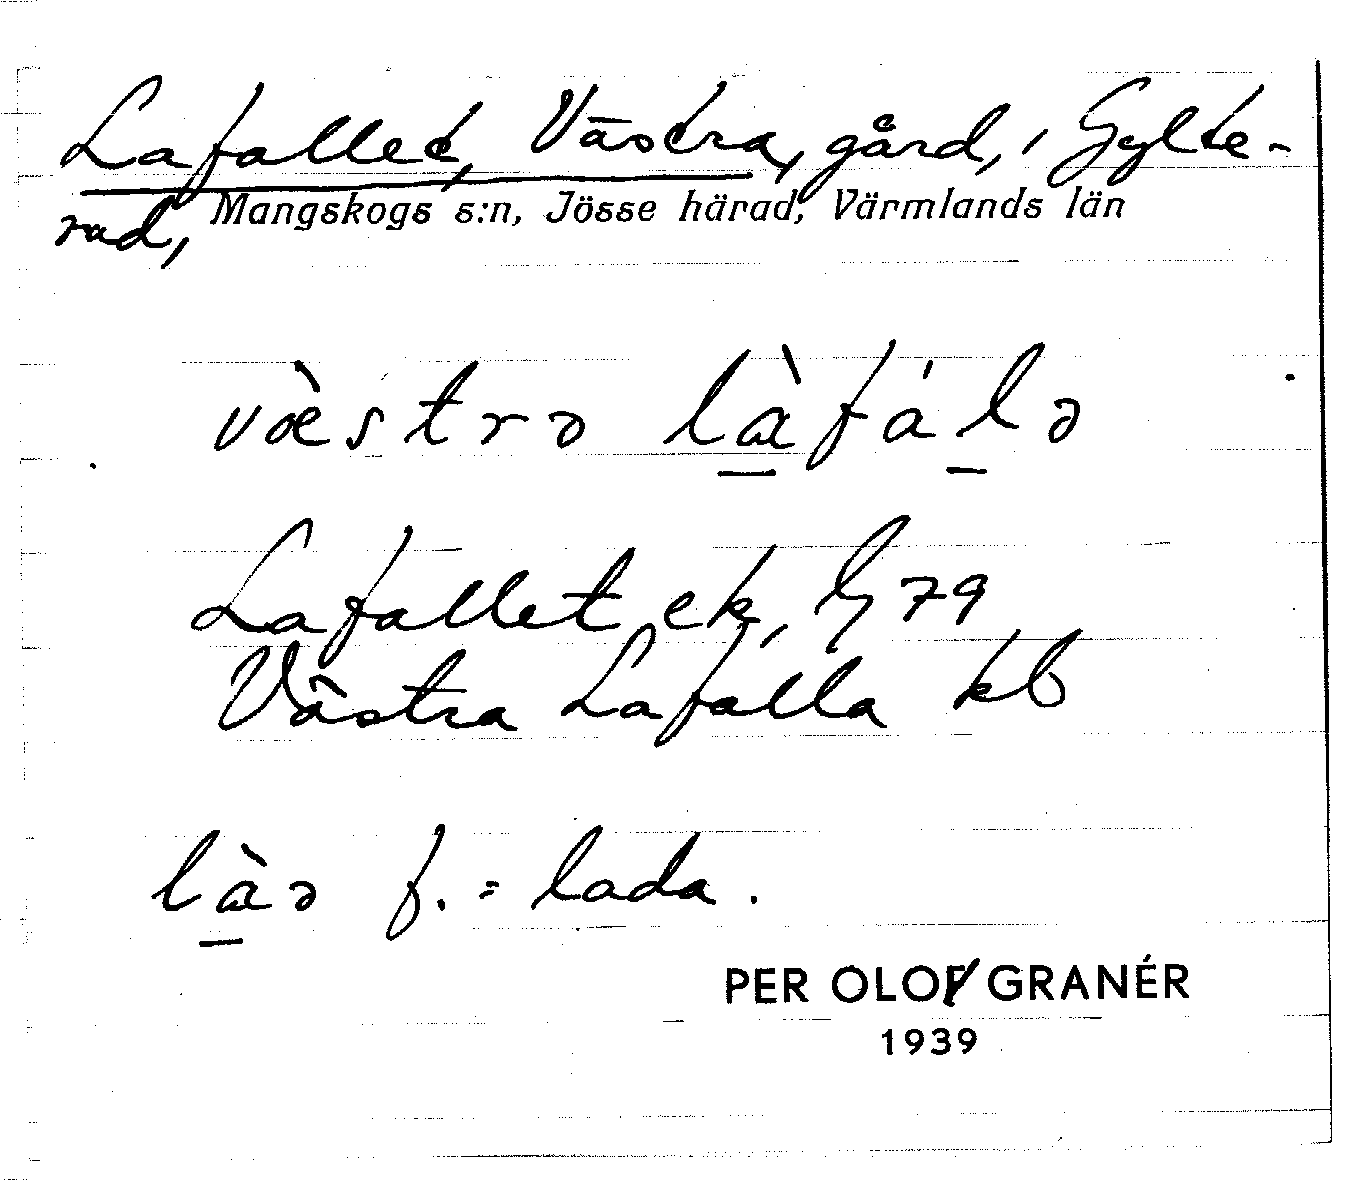 Lafallet, Västra, gård, i Gylte-
rud, Mangskogs s:n, Jösse härad, Värmlands län
væ̀strə là̠fál̠ə
Lafallet ek, G 79
Västra Lafalla kb
là̠ə f. = lada.
PER OLOF GRANÉR
1939